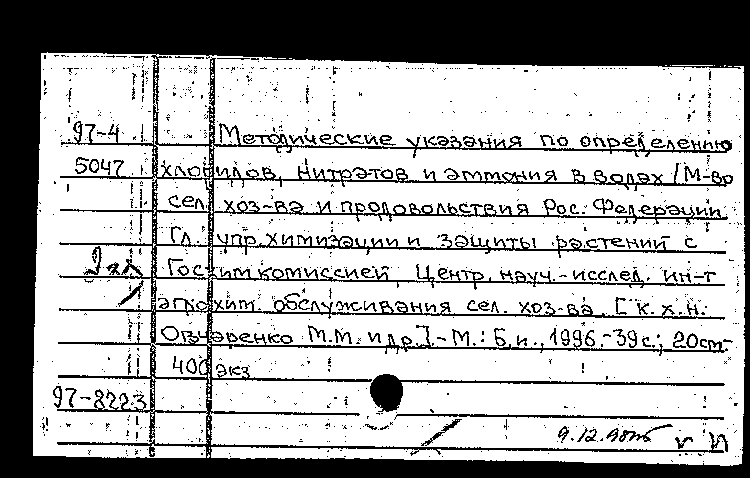 97-4 Методические указания по определению
5047 хлоридов, нитратов и аммония в водах / М-во
сел. хоз-ва и продовольствия Рос. Федерации
Гл. упр. химизации и защиты растений с
Госхимкомиссией, Центр. науч.-исслед. ин-т
агрохим. обслуживания сел. хоз-ва. [к.х.н.
Овчаренко М.М. и др.]-М.: Б.и., 1996.-39с.; 20см.-
400 экз
97-8223
9.12.98